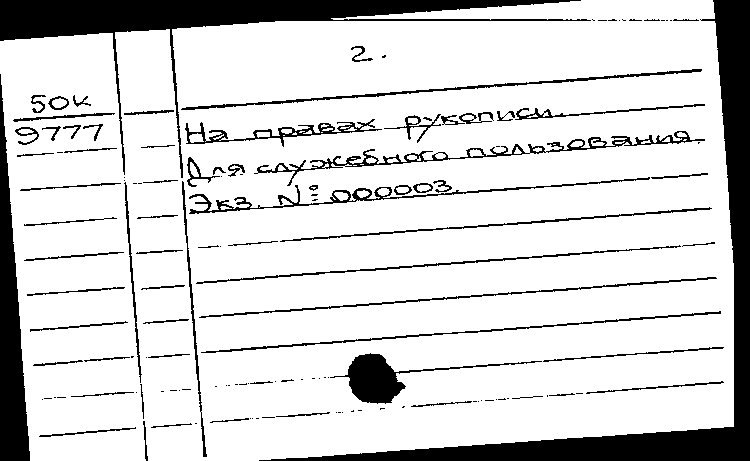 2.
50к
9777
На правах рукописи.
Для служебного пользования.
Экз. № 000003.